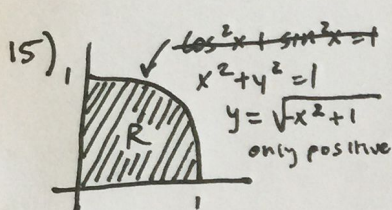 15)
cos²x + sin²x = 1
x² + y² = 1
1
y = √-x² + 1
R
only positive
1